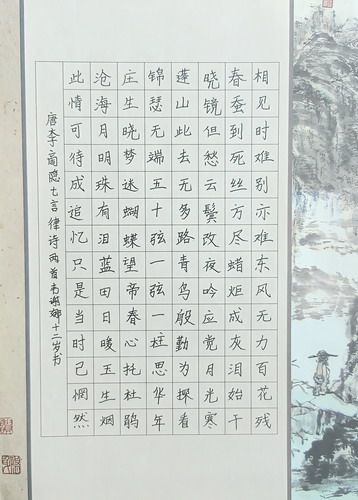 相见时难别亦难东风无力百花残
春蚕到死丝方尽蜡炬成灰泪始干
晓镜但愁云鬓改夜吟应觉月光寒
蓬山此去无多路青鸟殷勤为探看
锦瑟无端五十弦一弦一柱思华年
庄生晓梦迷蝴蝶望帝春心托杜鹃
沧海月明珠有泪蓝田日暖玉生烟
此情可待成追忆只是当时已惘然
唐李商隐七言律诗两首 十二岁书